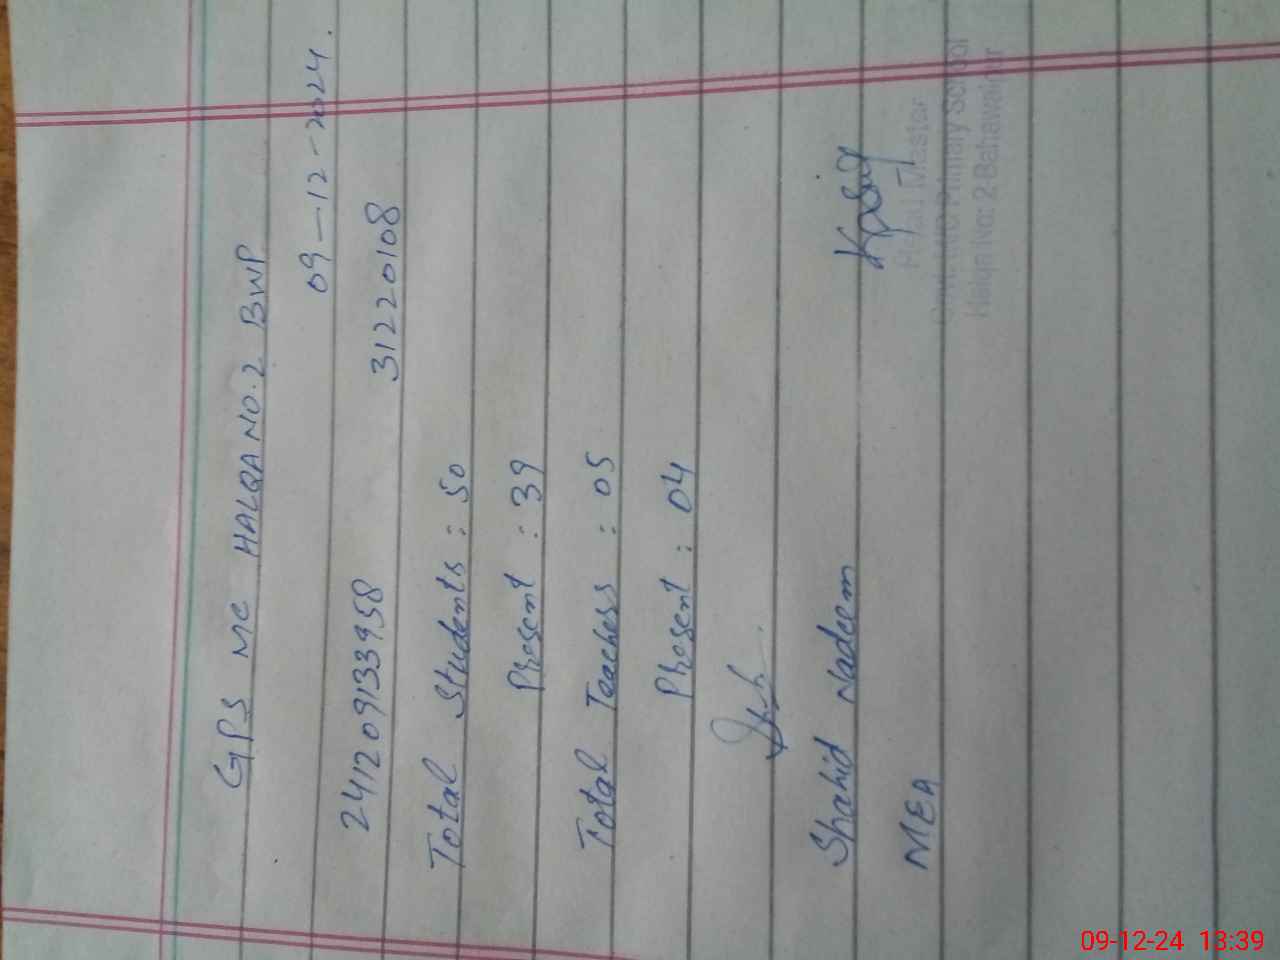 GPS MC HALQA NO.2 BWP
09-12-2024.
241209133958 31220108
Total Students : 50
Present : 39
Total Teachers : 05
Present : 04
Shahid Nadeem
MEA
Head Master
Primary School
Halqa No: 2 Bahawalpur
09-12-24 13:39